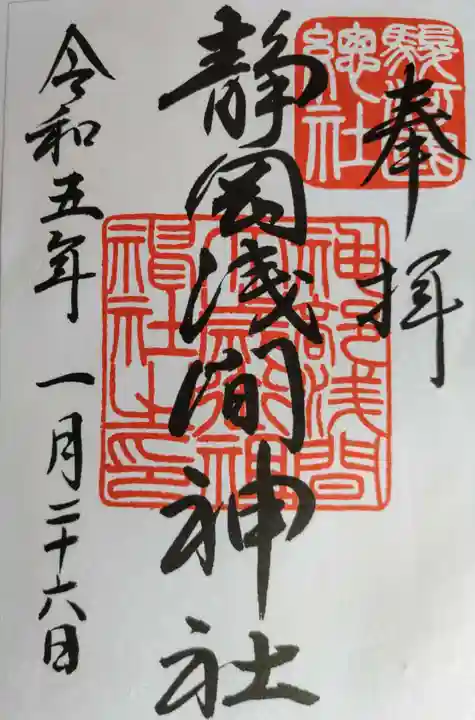 奉拝
駿河國
總社
静岡浅間神社
神部浅間
大歳御祖神
社之印
令和五年 一月二十六日